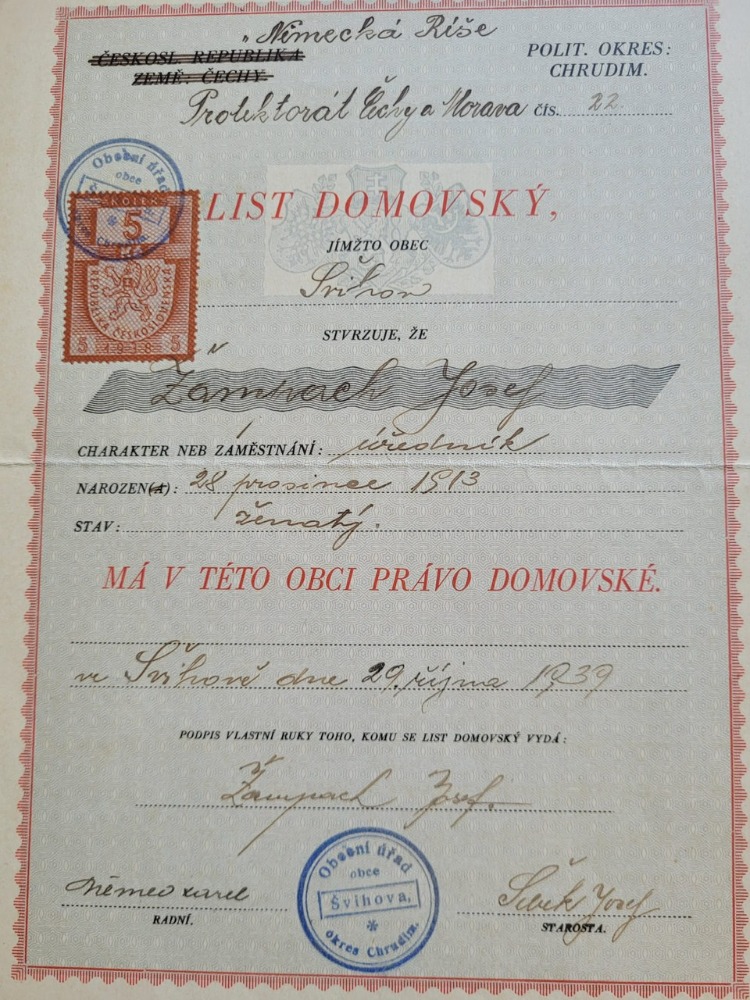 Německá Říše
ČESKOSL. REPUBLIKA
ZEMĚ: ČECHY.
POLIT. OKRES:
CHRUDIM.
Protektorát Čechy a Morava ČÍS. 22
Obecní úřad
obce
KOLEK
5
REPUBLIKA ČESKOSLOVENSKÁ
5 1938 5
LIST DOMOVSKÝ,
JÍMŽTO OBEC
Švihov
STVRZUJE, ŽE
Žámpach Josef
CHARAKTER NEB ZAMĚSTNÁNÍ: úředník
NAROZEN(A): 28 prosince 1913
STAV: ženatý.
MÁ V TÉTO OBCI PRÁVO DOMOVSKÉ.
ve Švihově dne 29. října 1939
PODPIS VLASTNÍ RUKY TOHO, KOMU SE LIST DOMOVSKÝ VYDÁ:
Žampach Josef.
Němec Karel
RADNÍ.
Obecní úřad
obce
Švihova,
okres Chrudim.
Josef
STAROSTA.